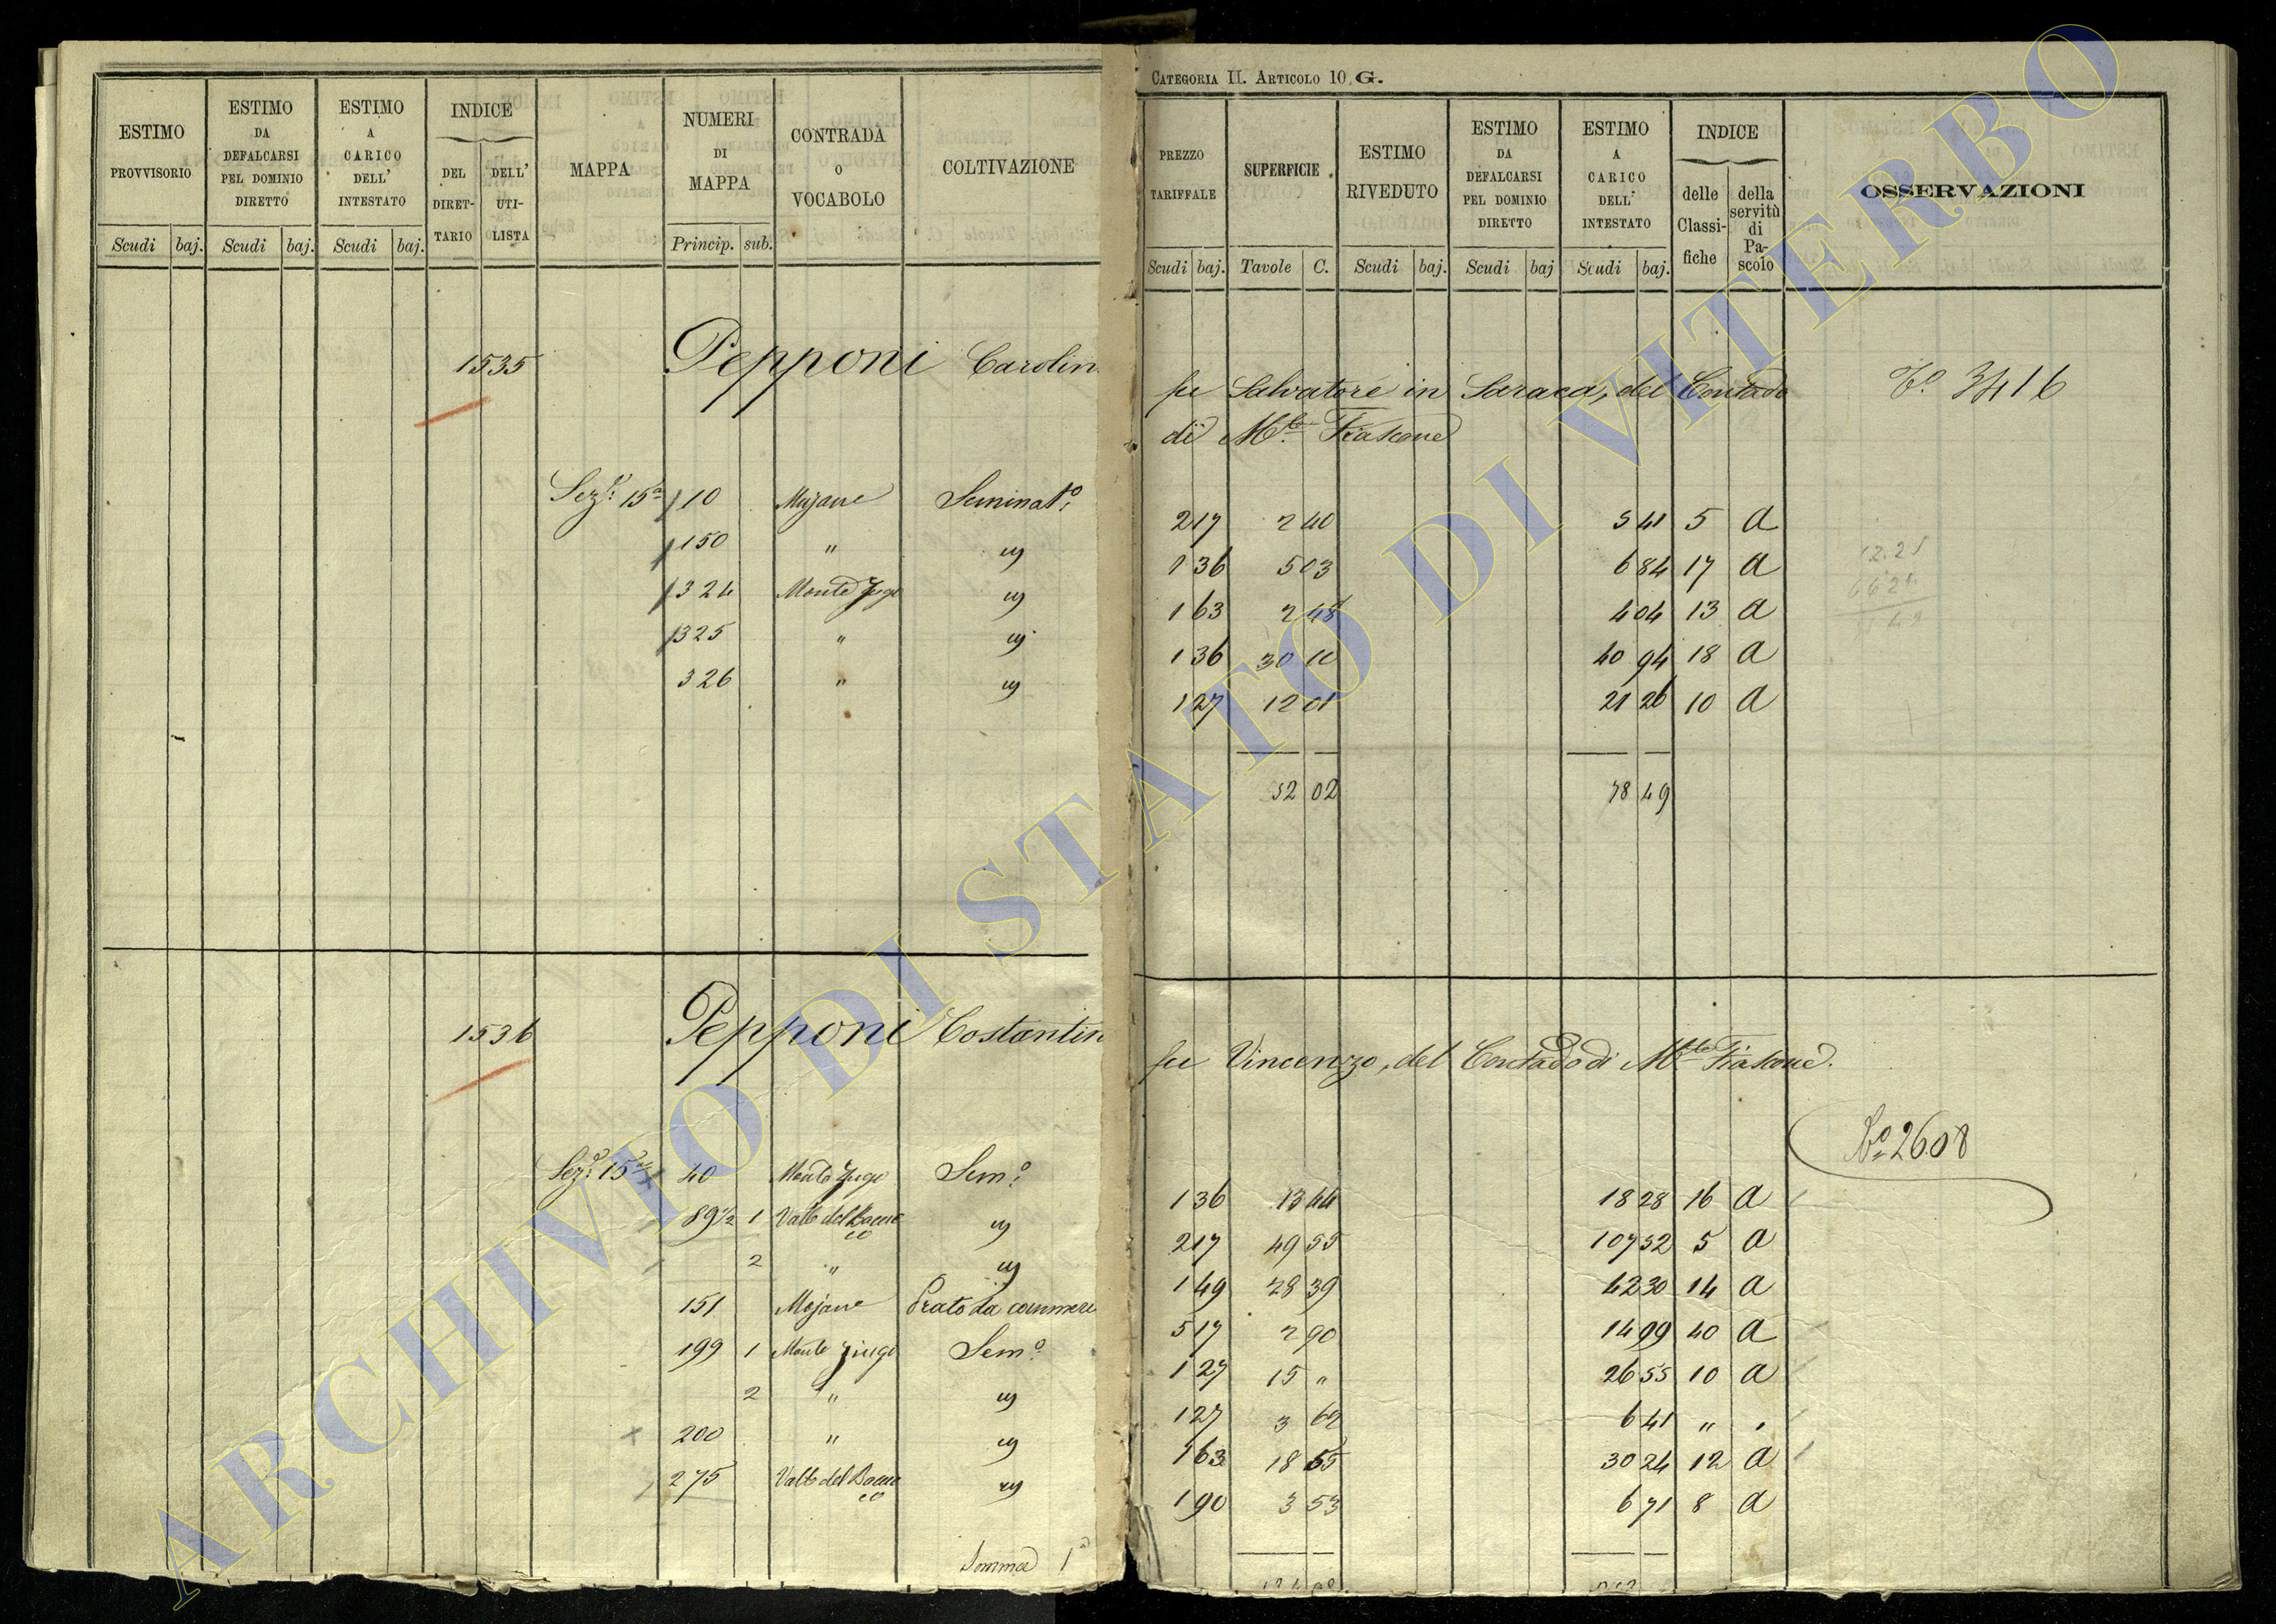 CATEGORIA II. ARTICOLO 10. G.
ESTIMO PROVVISORIO
ESTIMO DA DEFALCARSI PEL DOMINIO DIRETTO
ESTIMO A CARICO DELL' INTESTATO
INDICE
DEL DIRET-TARIO
DELL' UTI-LISTA
MAPPA
NUMERI DI MAPPA
CONTRADA O VOCABOLO
COLTIVAZIONE
Scudi baj. Scudi baj. Scudi baj. Princip. sub.
PREZZO TARIFFALE
SUPERFICIE
ESTIMO RIVEDUTO
ESTIMO DA DEFALCARSI PEL DOMINIO DIRETTO
ESTIMO A CARICO DELL' INTESTATO
INDICE
delle Classi-fiche
della servitù di Pa-scolo
OSSERVAZIONI
Scudi baj. Tavole C. Scudi baj. Scudi baj Scudi baj.
1535 Pepponi Carolin
fu Salvatore in Saraca, del Contado
di M.te Fiascone
3416
Sez.e 15a 110 Mojane Seminato.
150 " "
324 Monte Jugo "
325 " "
326 " "
2 17 2 40 5 41 5 a
1 36 5 03 6 84 17 a
1 63 2 48 4 04 13 a
1 36 30 10 40 94 18 a
1 27 12 01 21 26 10 a
52 02 78 49
1536 Pepponi Costantin
fu Vincenzo, del Contado di M.te Fiascone.
No 2608
Sez.e 15a 40 Monte Jugo Sem.o
89 1/2 1 Valle del Bacucco "
2 " "
151 Mojane Prato da
199 1 Monte Jiugo Sem.o
2 " "
200 " "
275 Valle del Bacucco "
Somma 1a
1 36 13 44 18 28 16 a
2 17 49 55 107 52 5 a
1 49 28 39 42 30 14 a
5 17 2 90 14 99 40 a
1 27 15 " 26 55 10 a
1 27 3 62 6 41 " "
1 63 18 55 30 24 12 a
1 90 3 53 6 71 8 a
ARCHIVIO DI STATO DI VITERBO